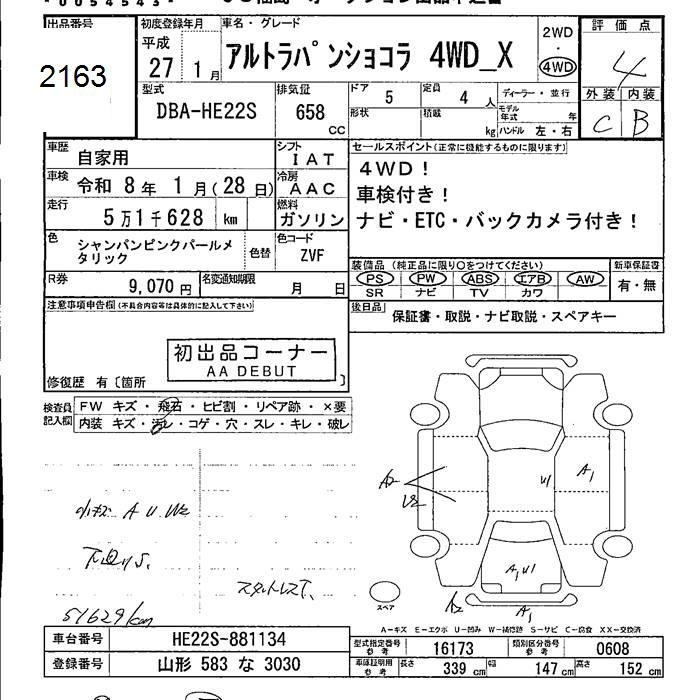 0054543
出品番号
2163
初度登録年月
平成
27 1月
車名・グレード
アルトラパンショコラ 4WD_X
2WD
・
4WD
評価点
4
外装 内装
C B
型式
DBA-HE22S
排気量
658
CC
ドア
5
定員
4 人
形状
積載
kg
ディーラー・並行
モデル年式 年
ハンドル 左・右
車歴
自家用
シフト
IAT
車検
令和 8年 1月(28日)
冷房
AAC
走行
5万1千628 km
燃料
ガソリン
色
シャンパンピンクパールメタリック
色替
色コード
ZVF
R券
9,070円
名変通知期限
月 日
セールスポイント(正常に機能するものに限ります)
4WD!
車検付き!
ナビ・ETC・バックカメラ付き!
装備品(純正品に限り○をつけてください)
PS PW ABS エアB AW
SR ナビ TV カワ
新車保証書
有・無
後日品
保証書・取説・ナビ取説・スペアキー
注意事項申告欄(不具合内容等は具体的に記入して下さい)
初出品コーナー
AA DEBUT
修復歴 有〔箇所 〕
検査員記入欄
FW キズ・飛石・ヒビ割・リペア跡・×要
内装 キズ・汚レ・コゲ・穴・スレ・キレ・破レ
小キズ A U W2
下廻りS.
スタットレスT.
51629km
A2
U2
U1
A1
A1 U1
A2
A1
スペア
A-キズ E-エクボ U-凹み W-補修跡 S-サビ C-腐食 XX-交換済
車台番号
HE22S-881134
登録番号
山形 583 な 3030
型式指定番号
参考
16173
類別区分番号
参考
0608
車庫証明用
参考
長さ 339 cm
幅 147 cm
高さ 152 cm